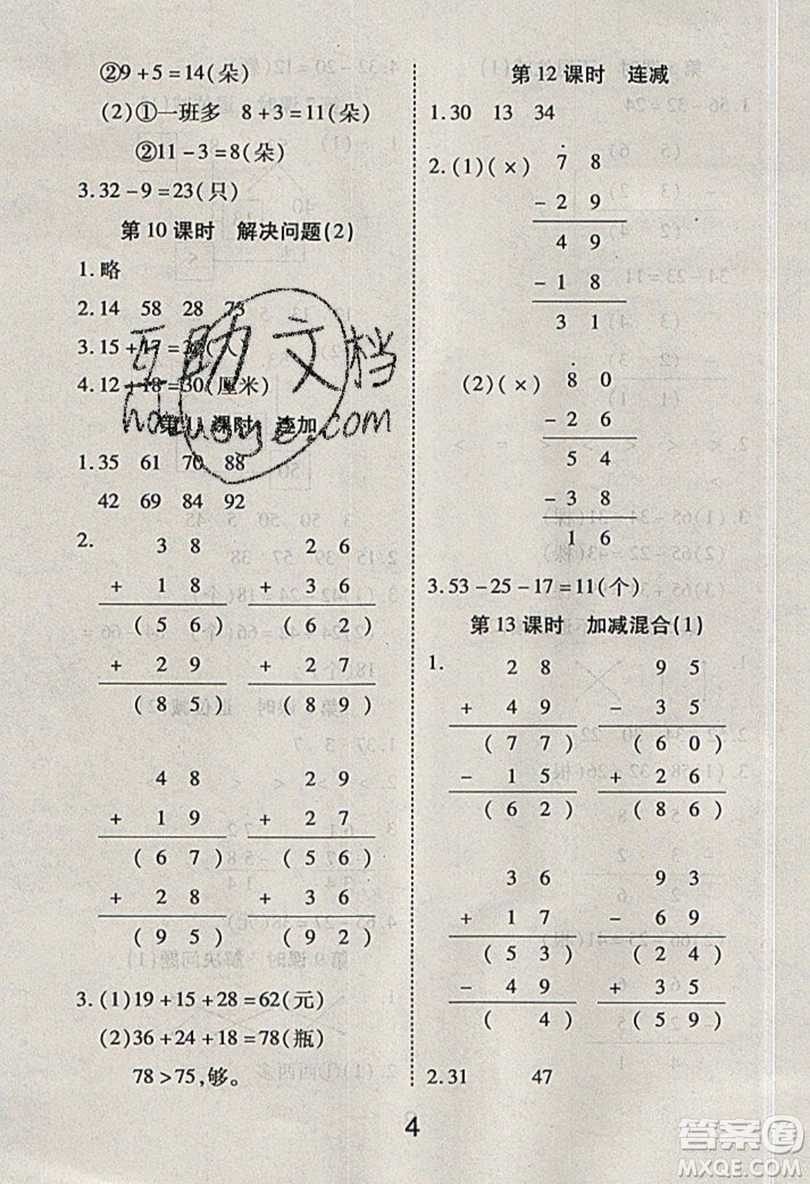 ②9+5=14(朵)
(2)①一班多 8+3=11(朵)
②11-3=8(朵)
3.32-9=23(只)
第10课时 解决问题(2)
1.略
2.14 58 28 73
3.15+17=32(人)
4.12+18=30(厘米)
第11课时 连加
1.35 61 70 88
42 69 84 92
2.
3 8
+ 1 8
(5 6)
+ 2 9
(8 5)
2 6
+ 3 6
(6 2)
+ 2 7
(8 9)
4 8
+ 1 9
(6 7)
+ 2 8
(9 5)
2 9
+ 2 7
(5 6)
+ 3 6
(9 2)
3.(1)19+15+28=62(元)
(2)36+24+18=78(瓶)
78>75,够。
第12课时 连减
1.30 13 34
2.(1)(×)
7 8
- 2 9
4 9
- 1 8
3 1
(2)(×)
8 0
- 2 6
5 4
- 3 8
1 6
3.53-25-17=11(个)
第13课时 加减混合(1)
1.
2 8
+ 4 9
(7 7)
- 1 5
(6 2)
9 5
- 3 5
(6 0)
+ 2 6
(8 6)
3 6
+ 1 7
(5 3)
- 4 9
( 4)
9 3
- 6 9
(2 4)
+ 3 5
(5 9)
2.31 47
4
互助文档
hduzuoye.com
答案圈
MXQE.COM